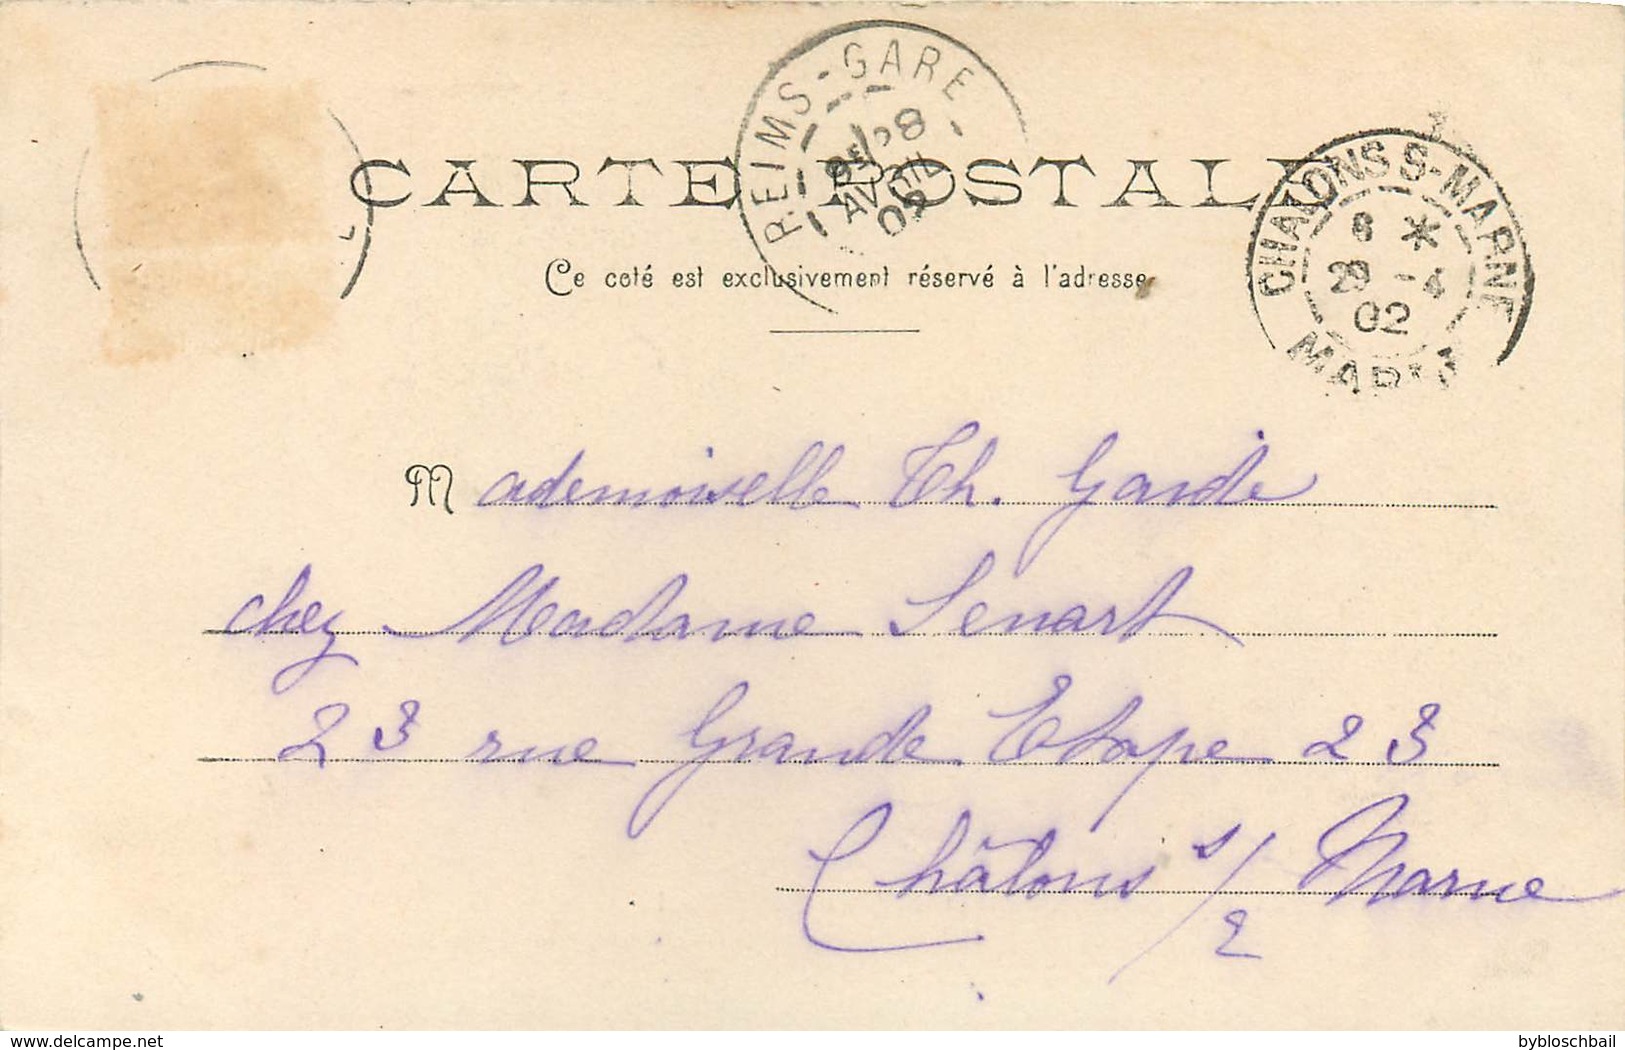 REIMS-GARE
28
AVRIL
02
CHALONS S-MARNE
6 *
29 - 4
02
MARNE
CARTE POSTALE
Ce coté est exclusivement réservé à l'adresse
Mademoiselle Th. Garde
chez Madame Senart
23 rue Grande Etape 23
Châlons s/ Marne
2
delcampe.net
bybloschbail